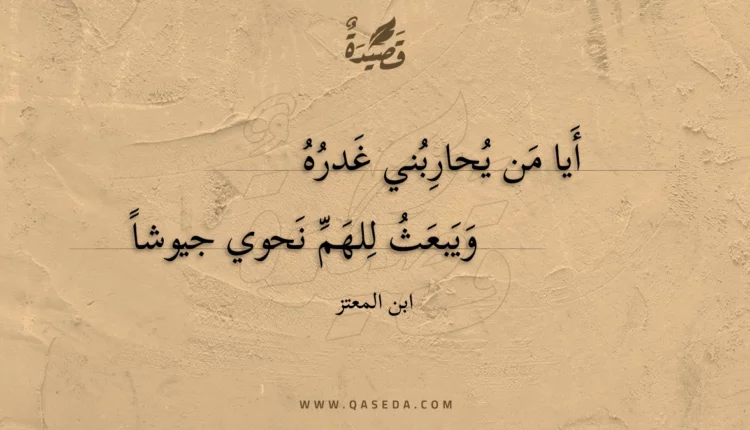 قَصِيدَةٌ
أَيا مَن يُحارِبُني غَدرُهُ
وَيَبعَثُ لِلهَمِّ نَحوي جيوشاً
ابن المعتز
WWW.QASEDA.COM